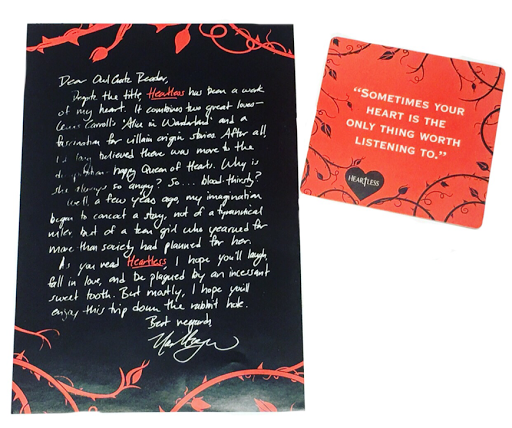 Dear OwlCrate Reader,
Despite the title, Heartless has been a work
of my heart. It combines two great loves–
Lewis Carroll's Alice in Wonderland and a
fascination for villain origin stories. After all!
I'd long believed there was more to the
happy Queen of Hearts. Why is
she always so angry? So... blood-thirsty?
Well a few years ago, my imagination
began to concoct a story, not of a tyrannical
ruler but of a teen girl who yearned for
more than society had planned for her.
As you read Heartless, I hope you'll laugh,
fall in love, and be plagued by an incessant
sweet tooth. But mostly, I hope you'll
enjoy this trip down the rabbit hole.
Best regards
"SOMETIMES YOUR
HEART IS THE
ONLY THING WORTH
LISTENING TO."
HEARTLESS